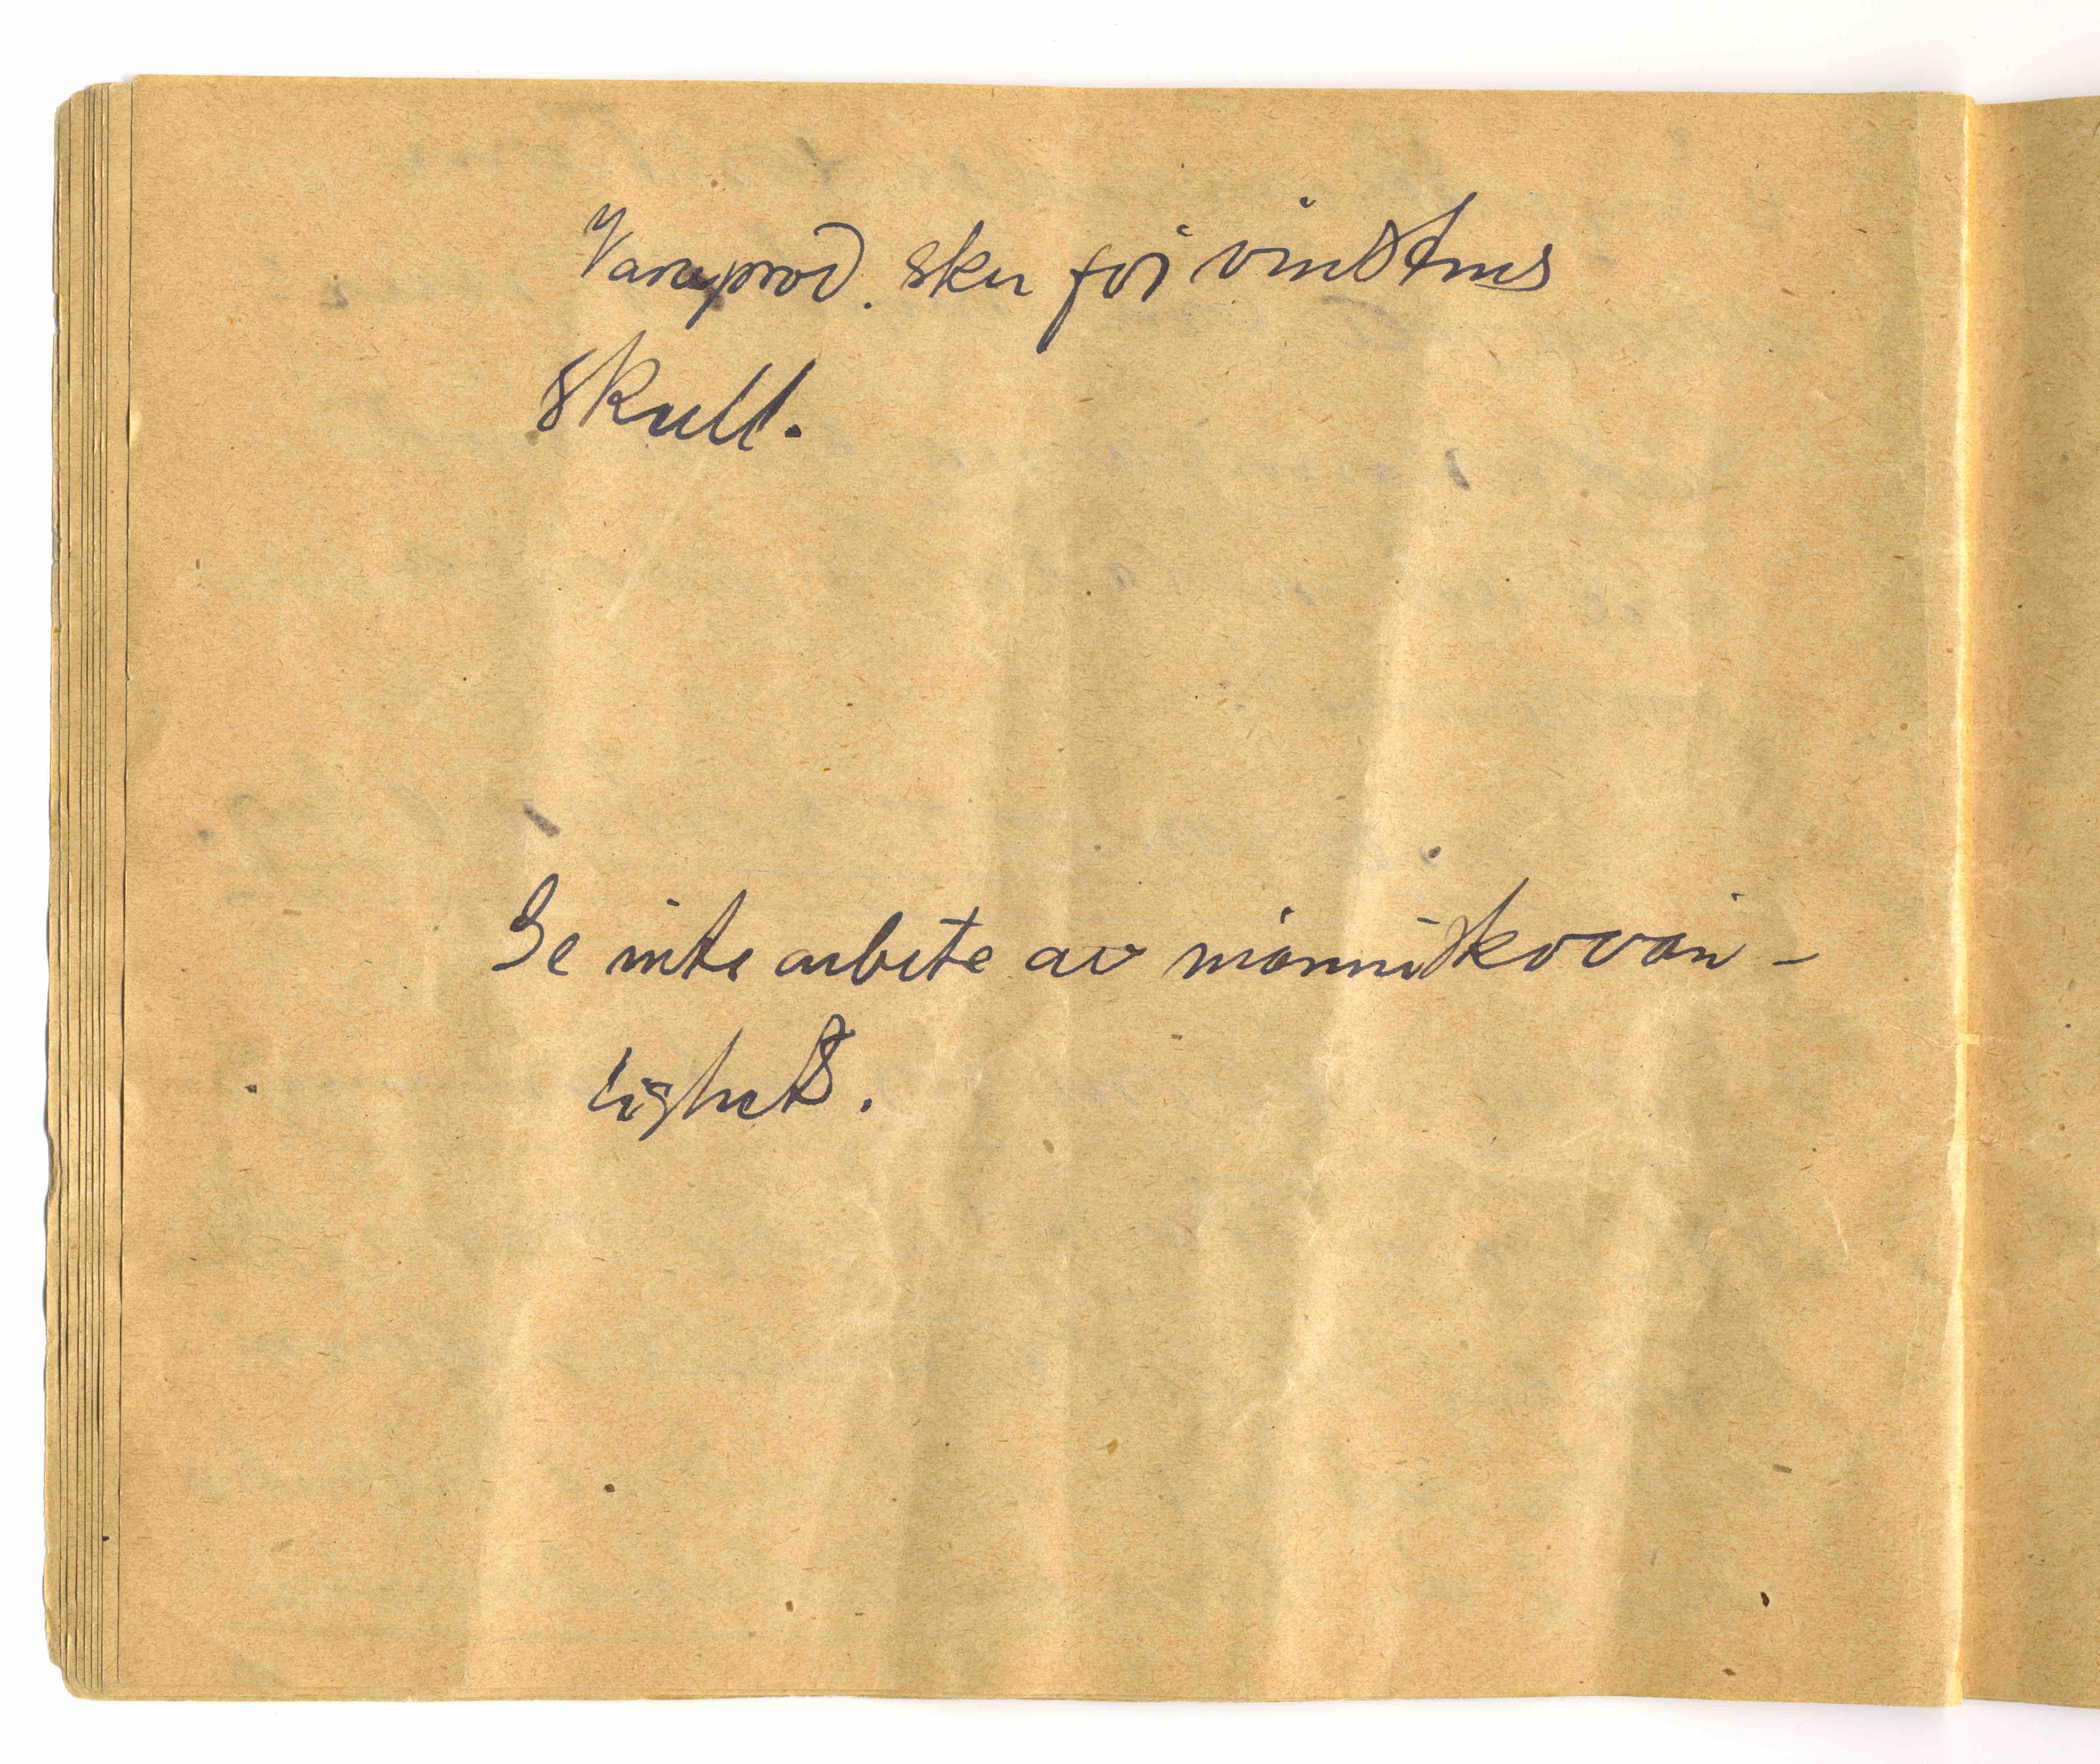 Varuprod. sker för vinstens
skull.
Ge inte arbete av människovän-
lighet.